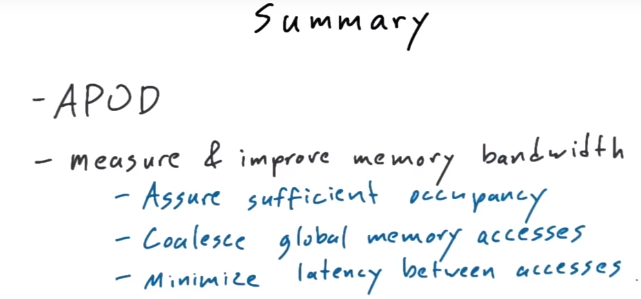 Summary
- APOD
- measure & improve memory bandwidth
- Assure sufficient occupancy
- Coalesce global memory accesses
- Minimize latency between accesses.